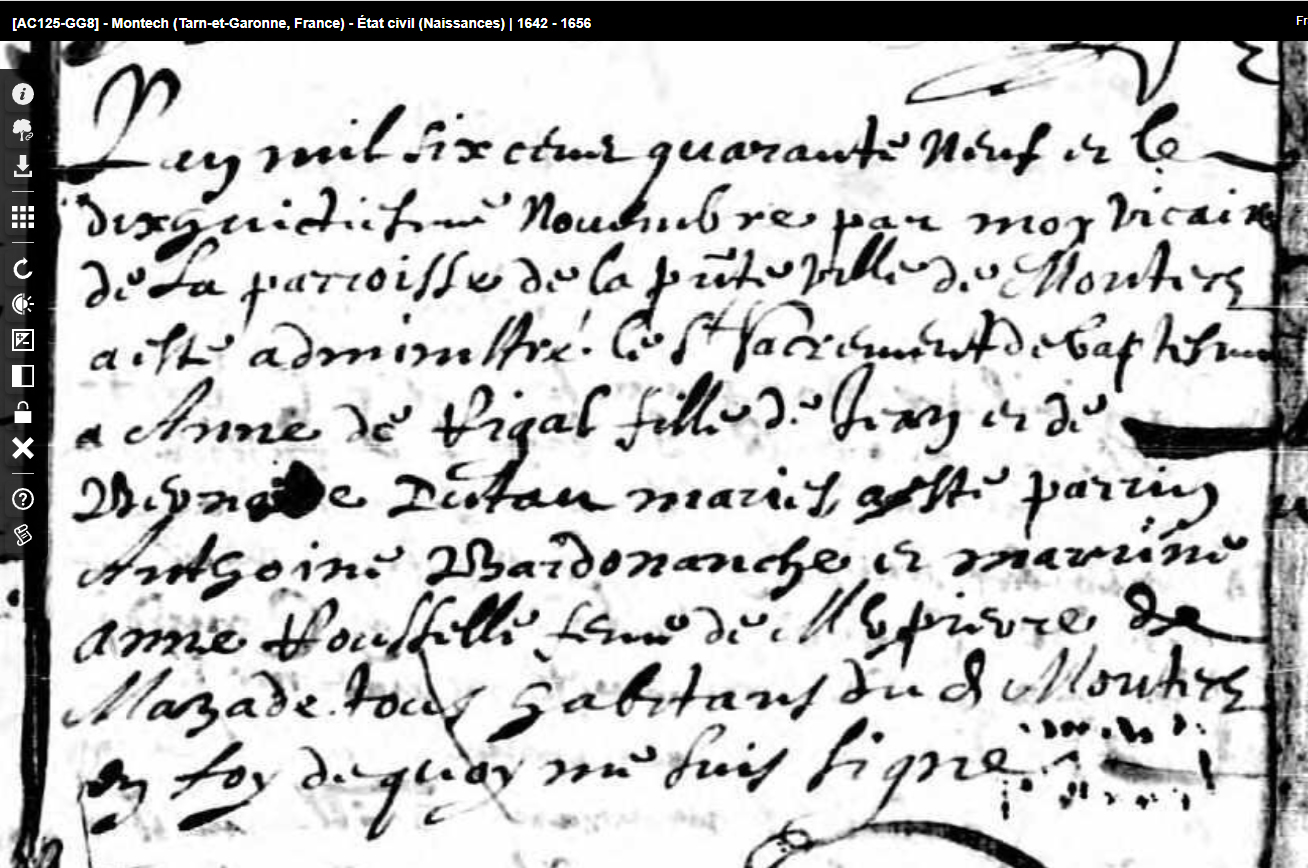 [AC125-GG8] - Montech (Tarn-et-Garonne, France) - État civil (Naissances) | 1642 - 1656
Fr
Lan mil six cens quarante neuf et le
dixhuictiesme Novembre par moy vicaire
de La parroisse de la pnte ville de Montech
a esté administré le St Sacrement de baptesme
a Anne de Rigal fille de Jean et de
Dutau mariés, a esté parrin
Anthoine Bardonanche et marrine
anne Rousselle feme de Me pierre de
Mazade tous habitans du d Montech
En foy de quoy me suis signe